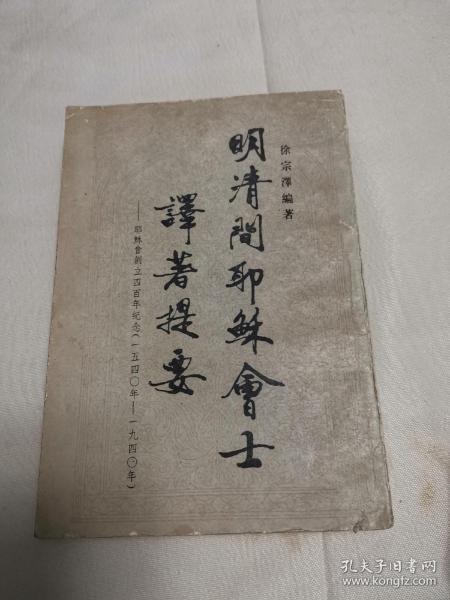 徐宗澤編著
明清間耶穌會士
譯著提要
——耶穌會創立四百年纪念(一五四〇年——一九四〇年)
孔夫子旧书网
www.kongfz.com